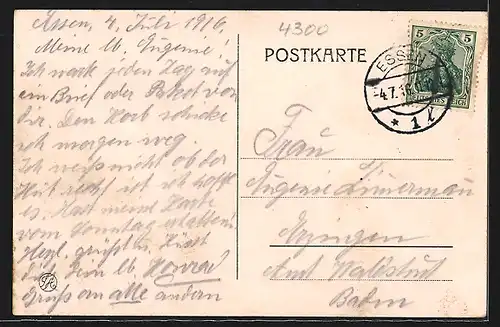 Essen, 4. Juli 1916,
Meine lb. Eugenie!
Ich wart jeden Tag auf
ein Brief oder Paket von
dir. Den Korb schicke
ich morgen weg.
Ich weiß nicht ob der
Hut recht ist ich hoffe
es. Hast meine Karte
vom Sonntag erhalten?
Herzl. grüßt u. küsst
dich Dein lb.
Gruß an alle andern
4300
POSTKARTE
ESSEN
4.7.16
* 1 l
5 5
DEUTSCHES REICH
Frau
Eugenie
Erzingen
Amt Waldshut
Baden